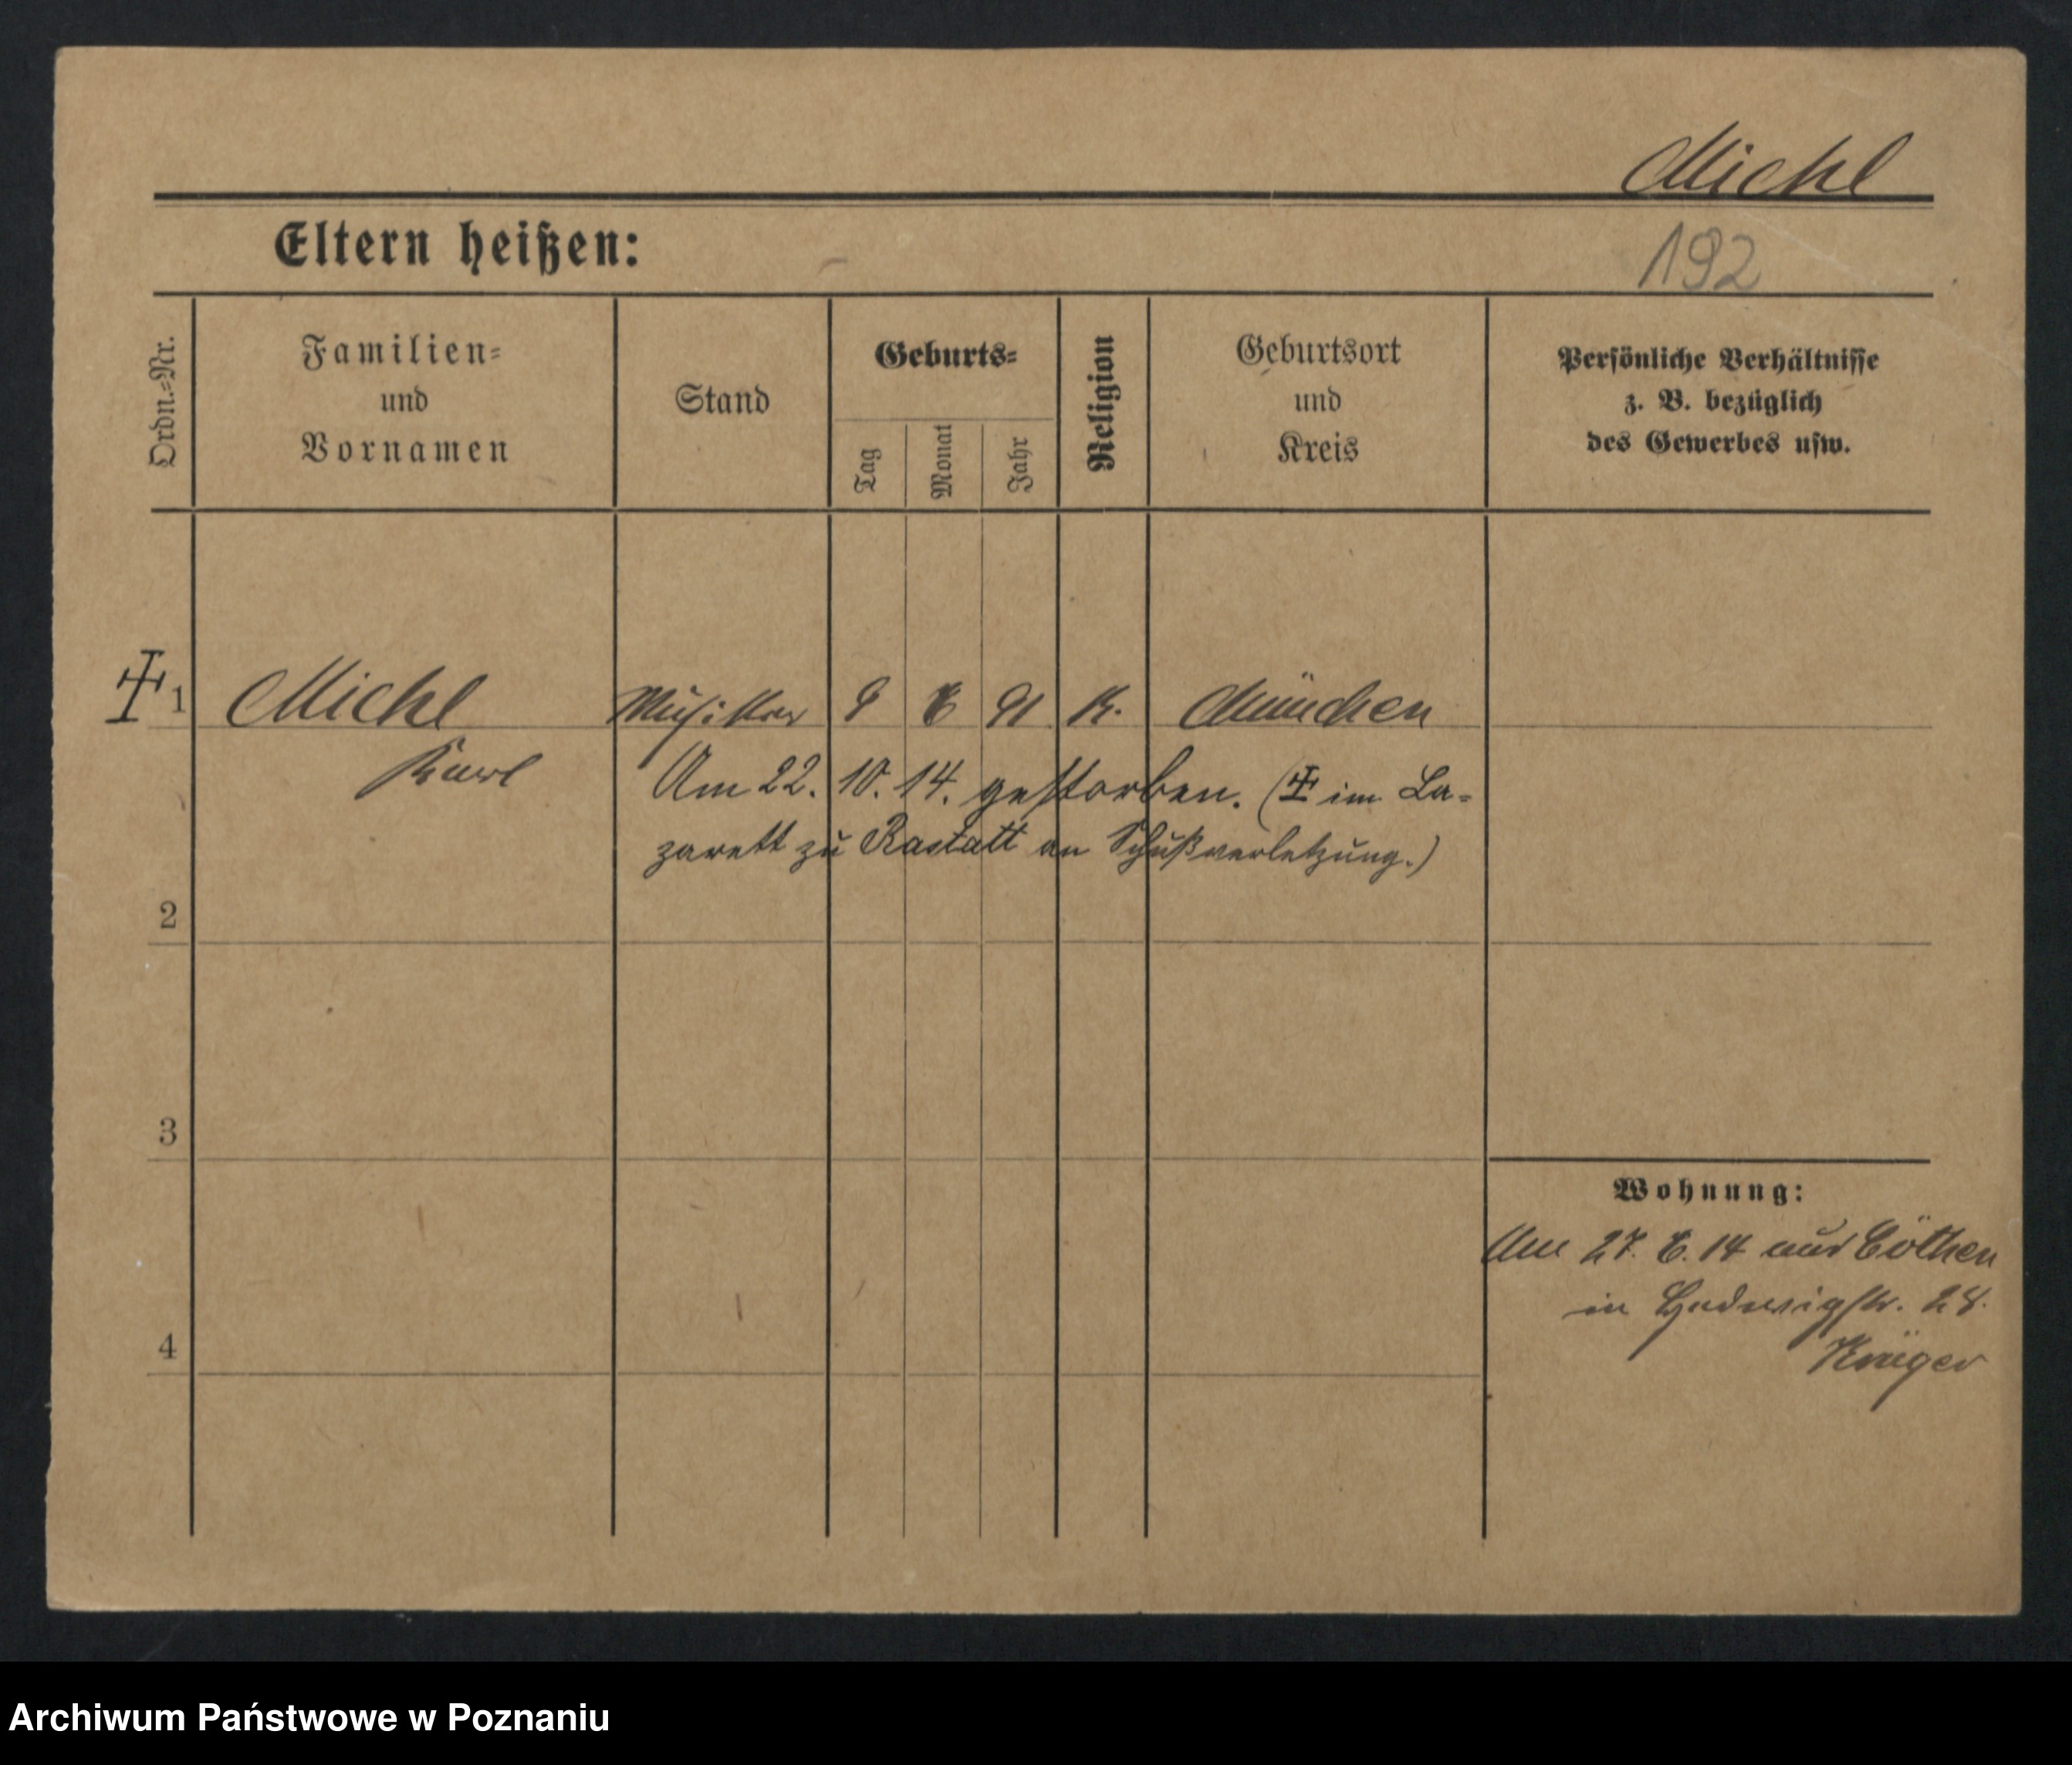 Michl
192
Eltern heißen:
Ordn.-Nr.
Familien-
und
Vornamen
Stand
Geburts-
Tag
Monat
Jahr
Religion
Geburtsort
und
Kreis
Persönliche Verhältnisse
z. B. bezüglich
des Gewerbes usw.
1 Michl Musiker 9 6 91 K. München
Karl
Am 22. 10. 14. gestorben. (‡ im La-
zarett zu Rastatt an Schußverletzung.)
2
3
Wohnung:
Am 27. 6. 14 aus Cöthen
in Hedwigstr. 28.
Krüger
4
Archiwum Państwowe w Poznaniu